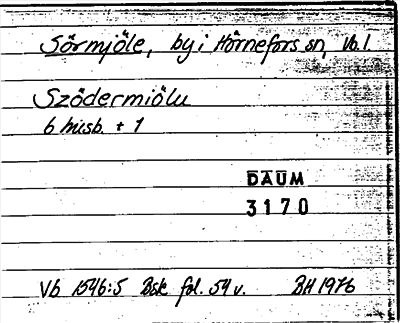 Sörmjöle, by i Hörnefors sn, Vb.l.
Szödermiölu
6 husb. + 1
DAUM
3170
Vb 1546:5 Bsk fol. 54 v. BH 1976